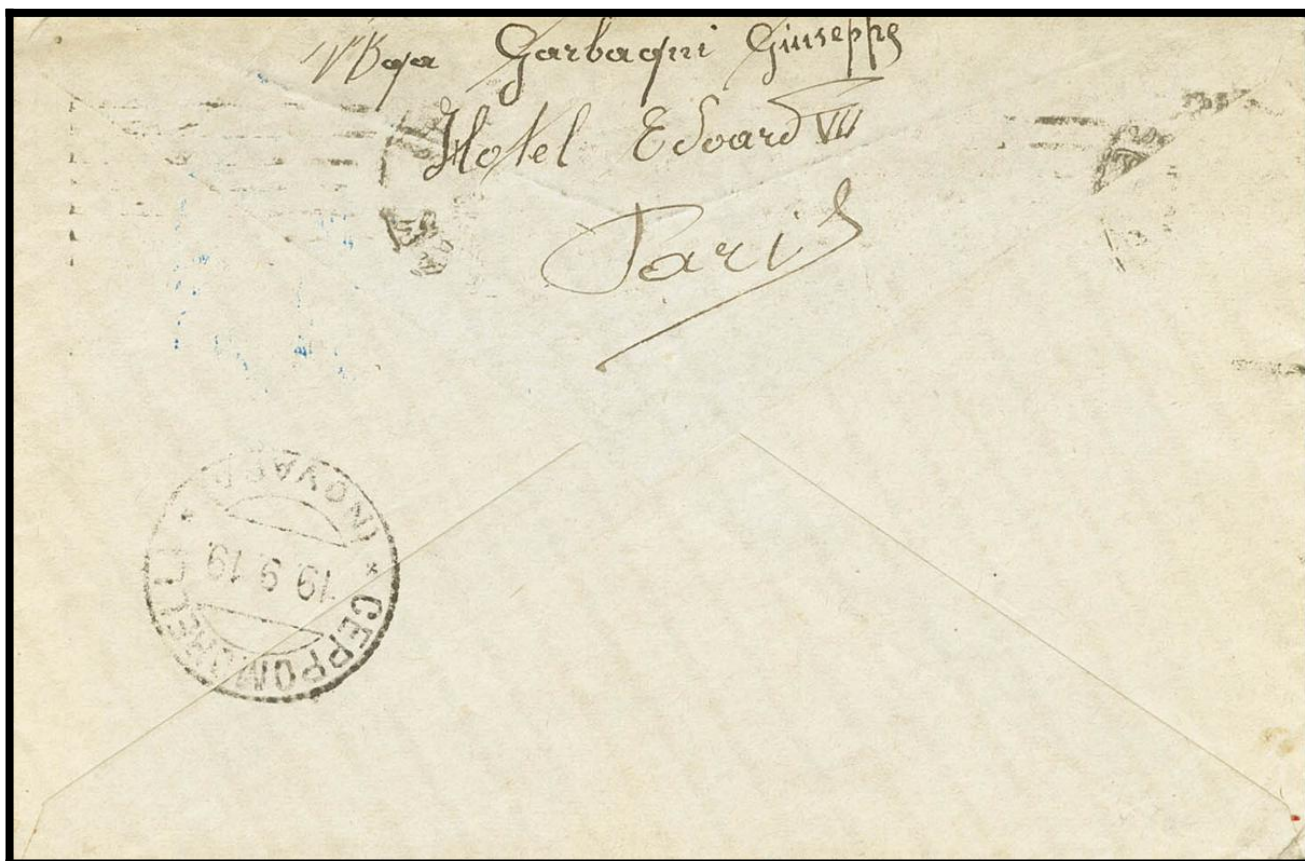 Garbagni Giuseppe
Hotel Edoard VII
Paris
CEPPOMORELLI * (NOVARA) *
19.9.19.